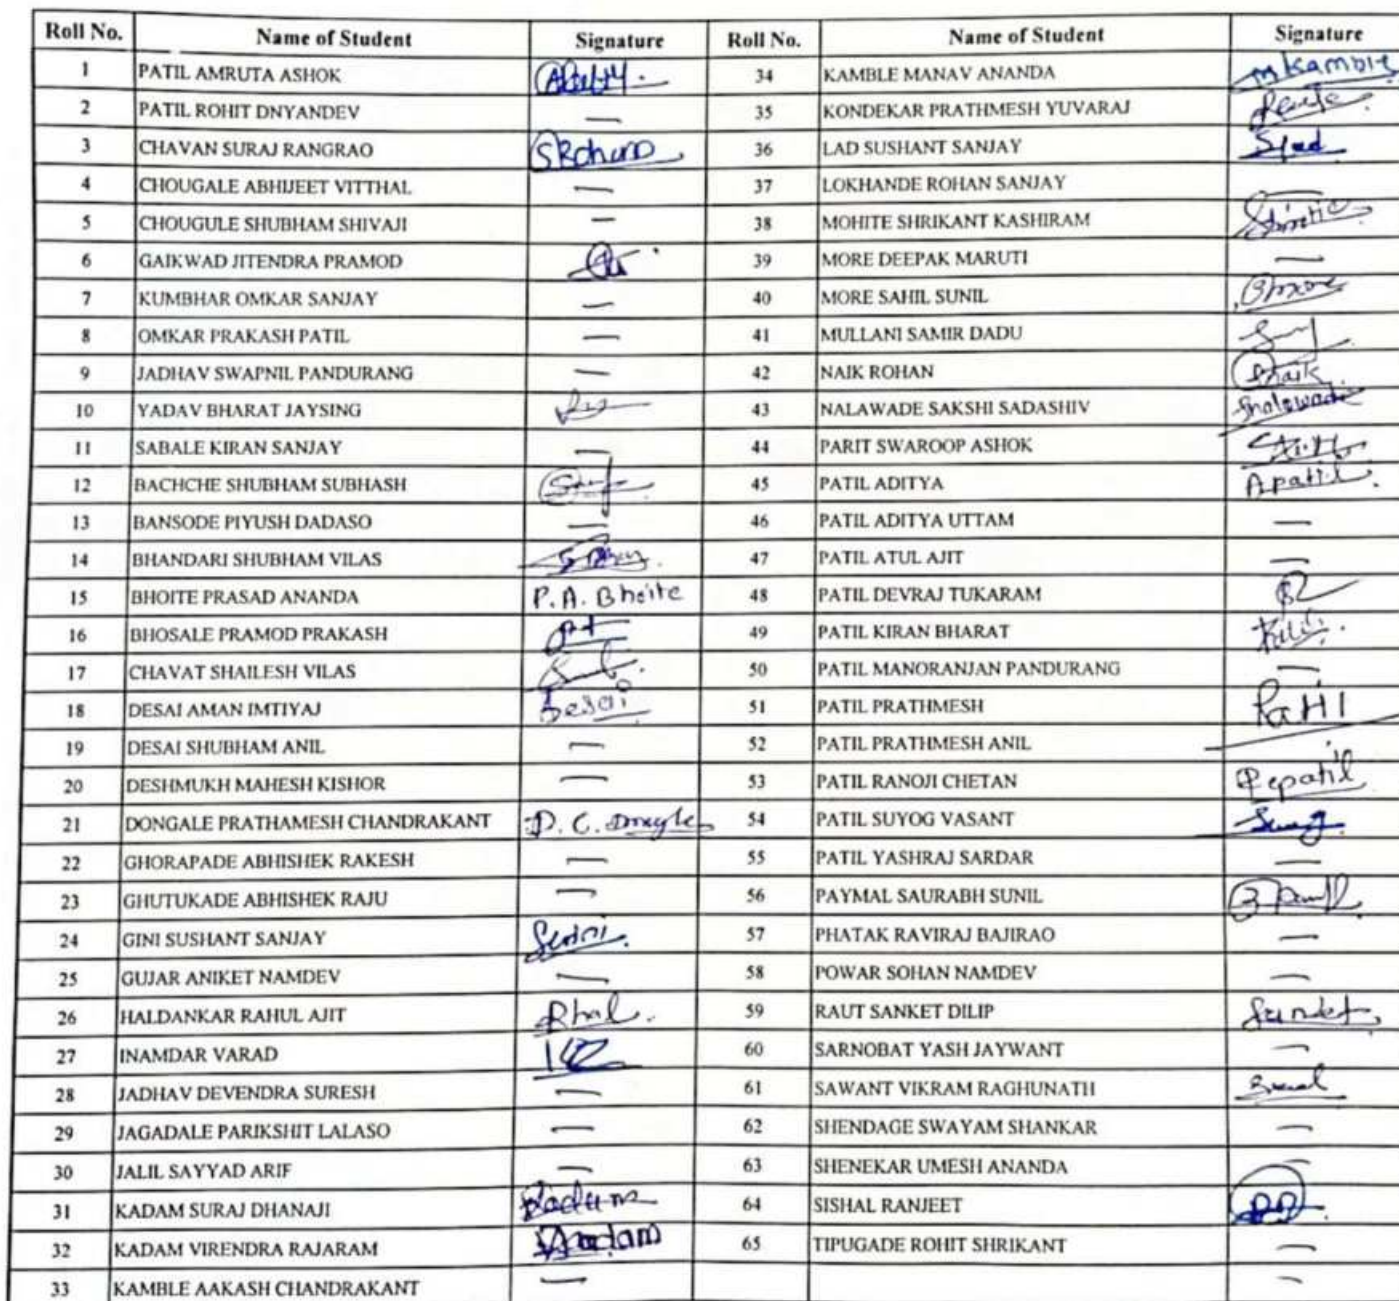 Roll No. Name of Student Signature Roll No. Name of Student Signature
1 PATIL AMRUTA ASHOK 34 KAMBLE MANAV ANANDA M Kamble
2 PATIL ROHIT DNYANDEV — 35 KONDEKAR PRATHMESH YUVARAJ
3 CHAVAN SURAJ RANGRAO 36 LAD SUSHANT SANJAY
4 CHOUGALE ABHIJEET VITTHAL — 37 LOKHANDE ROHAN SANJAY —
5 CHOUGULE SHUBHAM SHIVAJI — 38 MOHITE SHRIKANT KASHIRAM
6 GAIKWAD JITENDRA PRAMOD 39 MORE DEEPAK MARUTI —
7 KUMBHAR OMKAR SANJAY — 40 MORE SAHIL SUNIL
8 OMKAR PRAKASH PATIL — 41 MULLANI SAMIR DADU
9 JADHAV SWAPNIL PANDURANG — 42 NAIK ROHAN
10 YADAV BHARAT JAYSING 43 NALAWADE SAKSHI SADASHIV
11 SABALE KIRAN SANJAY — 44 PARIT SWAROOP ASHOK
12 BACHCHE SHUBHAM SUBHASH 45 PATIL ADITYA Apatil
13 BANSODE PIYUSH DADASO — 46 PATIL ADITYA UTTAM —
14 BHANDARI SHUBHAM VILAS 47 PATIL ATUL AJIT —
15 BHOITE PRASAD ANANDA P. A. Bhoite 48 PATIL DEVRAJ TUKARAM
16 BHOSALE PRAMOD PRAKASH 49 PATIL KIRAN BHARAT
17 CHAVAT SHAILESH VILAS 50 PATIL MANORANJAN PANDURANG —
18 DESAI AMAN IMTIYAJ Desai 51 PATIL PRATHMESH Patil
19 DESAI SHUBHAM ANIL — 52 PATIL PRATHMESH ANIL
20 DESHMUKH MAHESH KISHOR — 53 PATIL RANOJI CHETAN
21 DONGALE PRATHAMESH CHANDRAKANT 54 PATIL SUYOG VASANT
22 GHORAPADE ABHISHEK RAKESH — 55 PATIL YASHRAJ SARDAR —
23 GHUTUKADE ABHISHEK RAJU — 56 PAYMAL SAURABH SUNIL
24 GINI SUSHANT SANJAY 57 PHATAK RAVIRAJ BAJIRAO —
25 GUJAR ANIKET NAMDEV — 58 POWAR SOHAN NAMDEV —
26 HALDANKAR RAHUL AJIT 59 RAUT SANKET DILIP Sanket
27 INAMDAR VARAD 60 SARNOBAT YASH JAYWANT —
28 JADHAV DEVENDRA SURESH — 61 SAWANT VIKRAM RAGHUNATH
29 JAGADALE PARIKSHIT LALASO — 62 SHENDAGE SWAYAM SHANKAR —
30 JALIL SAYYAD ARIF — 63 SHENEKAR UMESH ANANDA —
31 KADAM SURAJ DHANAJI 64 SISHAL RANJEET
32 KADAM VIRENDRA RAJARAM 65 TIPUGADE ROHIT SHRIKANT —
33 KAMBLE AAKASH CHANDRAKANT — —